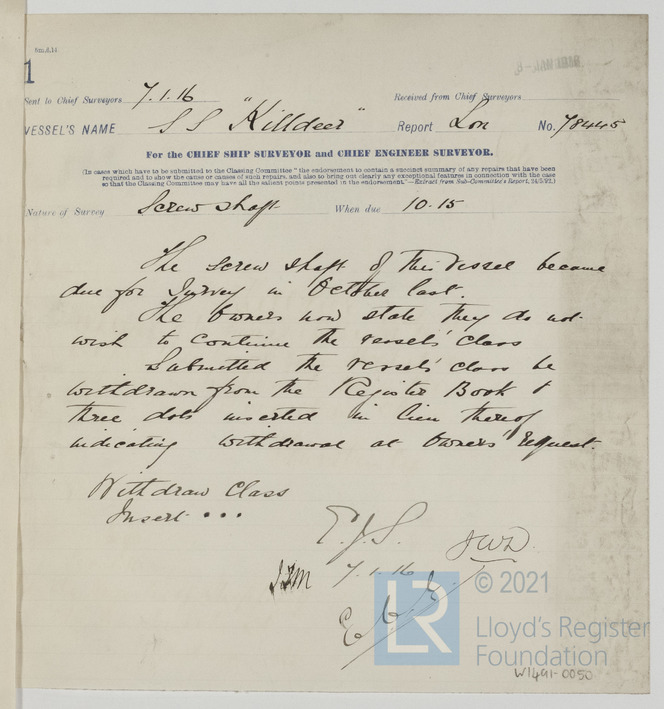 6m,6,14
1
Sent to Chief Surveyors 7.1.16 Received from Chief Surveyors
VESSEL'S NAME SS "Killdeer" Report Lon No. 78445
For the CHIEF SHIP SURVEYOR and CHIEF ENGINEER SURVEYOR.
(In cases which have to be submitted to the Classing Committee "the endorsement to contain a succinct summary of any repairs that have been
required and to show the cause or causes of such repairs, and also to bring out clearly any exceptional features in connection with the case
so that the Classing Committee may have all the salient points presented in the endorsement."—Extract from Sub-Committee's Report,
Nature of Survey Screw shaft When due 10.15
The screw shaft of this vessel became
due for Survey in October last.
The Owners now state they do not
wish to continue the vessel's class
Submitted the vessel's class be
withdrawn from the Register Book &
three dots inserted in lieu thereof
indicating withdrawal at Owners' request.
Withdraw Class
Insert •••
E.J.S.
JWD.
7.1.16
LR
© 2021
Lloyd's Register
Foundation
W1491-0050